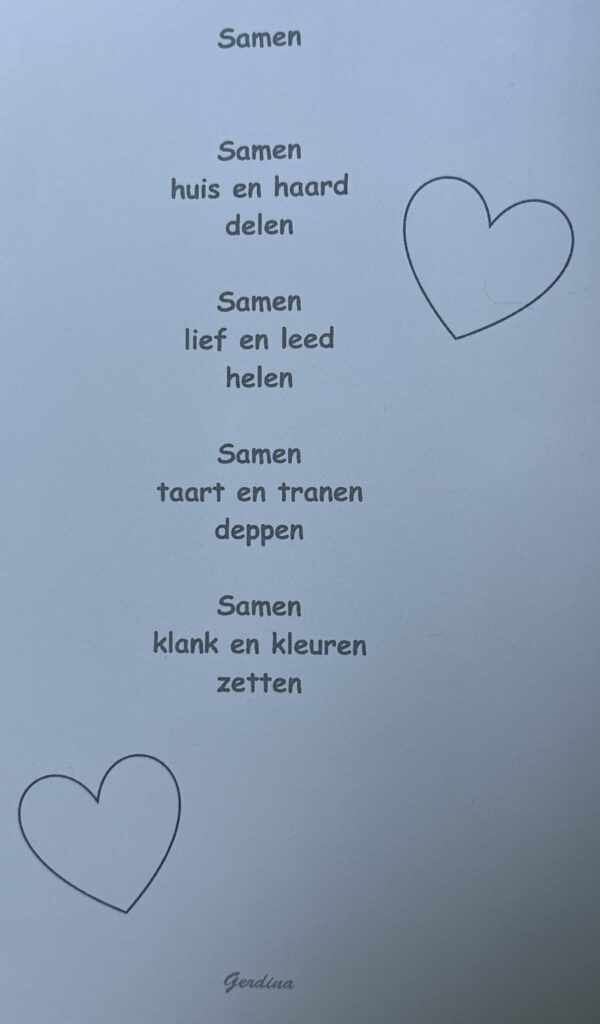 Samen
Samen
huis en haard
delen
Samen
lief en leed
helen
Samen
taart en tranen
deppen
Samen
klank en kleuren
zetten
Gerdina